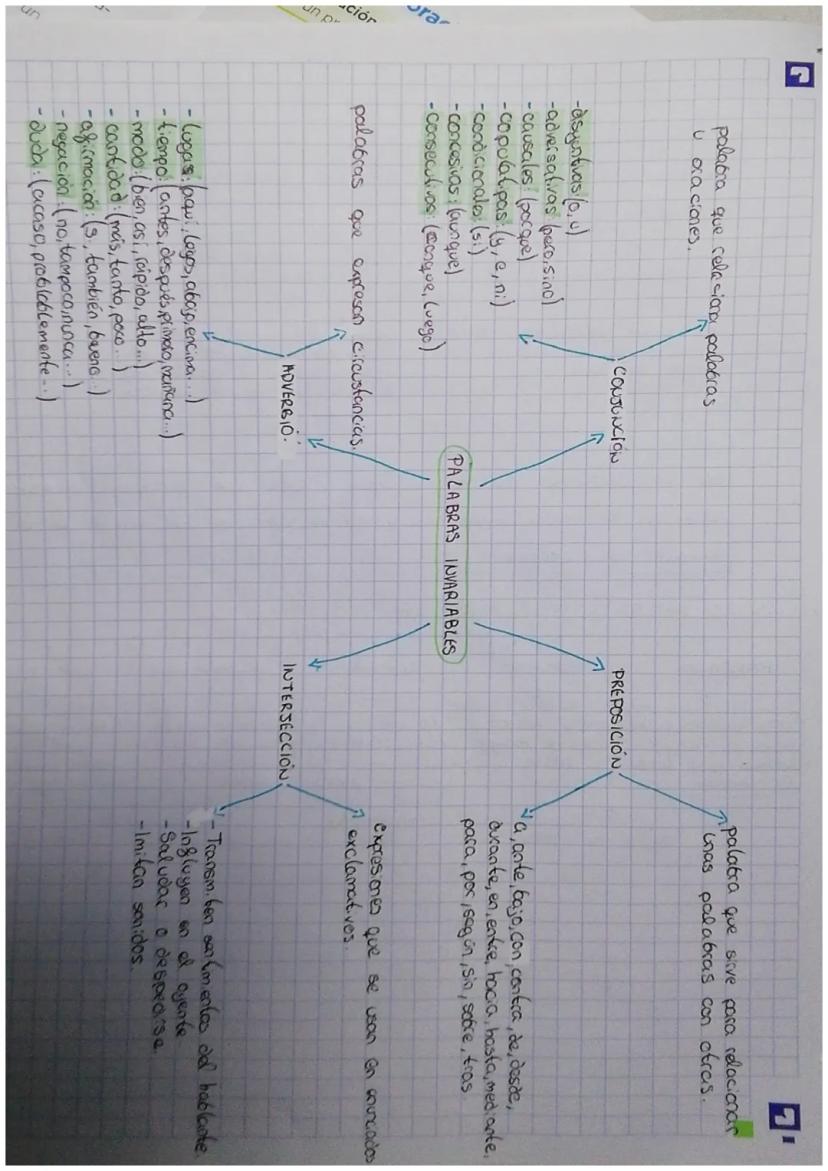 palabra que relaciona palabras
u oraciones.
CONJUNCIÓN
-disyuntivas: (o, u)
-adversativas: (pero, sino)
-causales: (porque)
-copulativas: (y, e, ni)
-condicionales: (si)
-concesivas: (aunque)
-consecutivas: (conque, luego)
palabra que sirve para relacionar
unas palabras con otras.
PREPOSICIÓN
a, ante, bajo, con, contra, de, desde,
durante, en, entre, hacia, hasta, mediante,
para, por, según, sin, sobre, tras
PALABRAS INVARIABLES
palabras que expresan circustancias.
ADVERBIO.
-lugar: (aquí, lejos, abajo, encima...)
-tiempo: (antes, después, pronto, mañana...)
-modo: (bien, así, rápido, alto...)
-cantidad: (más, tanto, poco...)
-afirmación: (si, también, bueno...)
-negación: (no, tampoco, nunca...)
-duda: (acaso, problablemente...)
expresiones que se usan en enunciados
exclamativos.
INTERJECCIÓN
-Transmiten sentimientos del hablante.
-Influyen en el oyente
-Saludar o despedirse.
-Imitan sonidos.